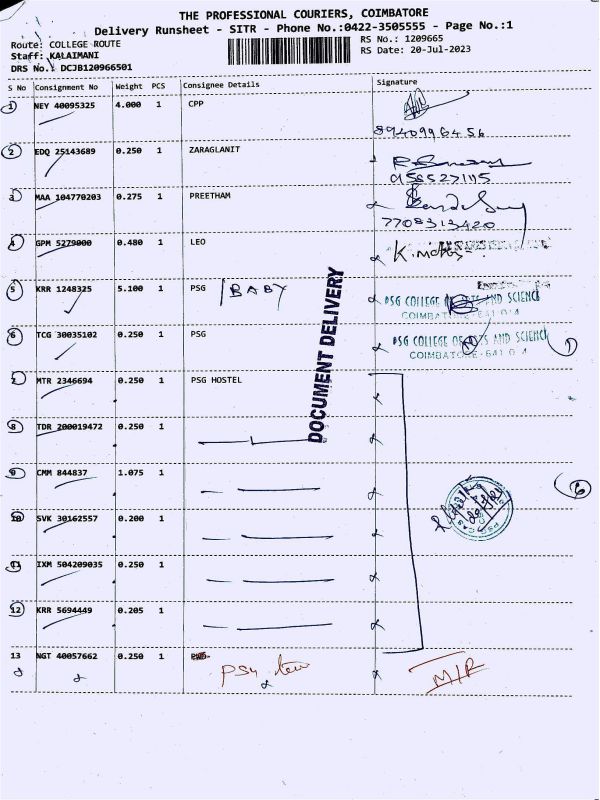 THE PROFESSIONAL COURIERS, COIMBATORE
Delivery Runsheet - SITR - Phone No.:0422-3505555 - Page No.:1
Route: COLLEGE ROUTE
RS No.: 1209665
Staff: KALAIMANI
RS Date: 20-Jul-2023
DRS No.: DCJB120966501
S No Consignment No Weight PCS Consignee Details Signature
1 NEY 40095325 4.000 1 CPP
8940996456
2 EDQ 25143689 0.250 1 ZARAGLANIT
3 MAA 104770203 0.275 1 PREETHAM
7708313420
4 GPM 5279000 0.480 1 LEO
5 KRR 1248325 5.100 1 PSG BABY
PSG COLLEGE OF ARTS AND SCIENCE
COIMBATORE - 641 014
6 TCG 30035102 0.250 1 PSG
PSG COLLEGE OF ARTS AND SCIENCE
COIMBATORE - 641 014
DOCUMENT DELIVERY
7 MTR 2346694 0.250 1 PSG HOSTEL
8 TDR 200019472 0.250 1
9 CMM 844837 1.075 1
6
10 SVK 30162557 0.200 1
11 IXM 504209035 0.250 1
12 KRR 5694449 0.205 1
13 NGT 40057662 0.250 1
M/R